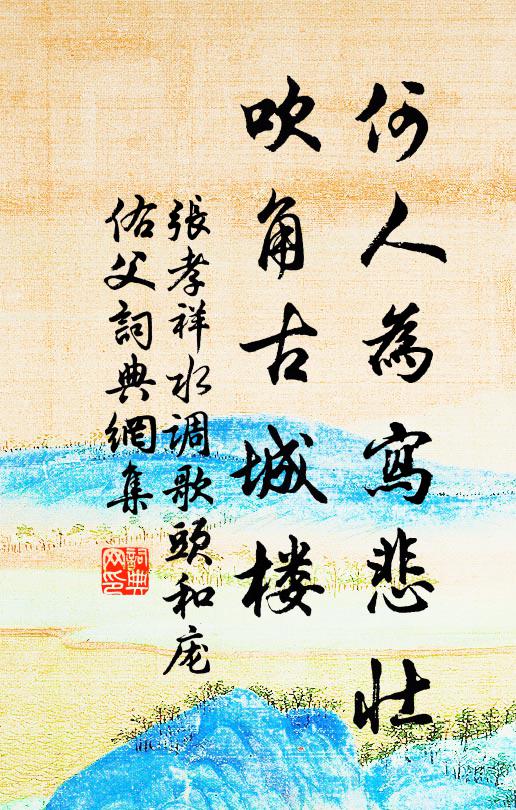 何人為寫悲壯
吹角古城楼
張孝祥水调歌頭和庞
佑父詞典網集
詞典网印